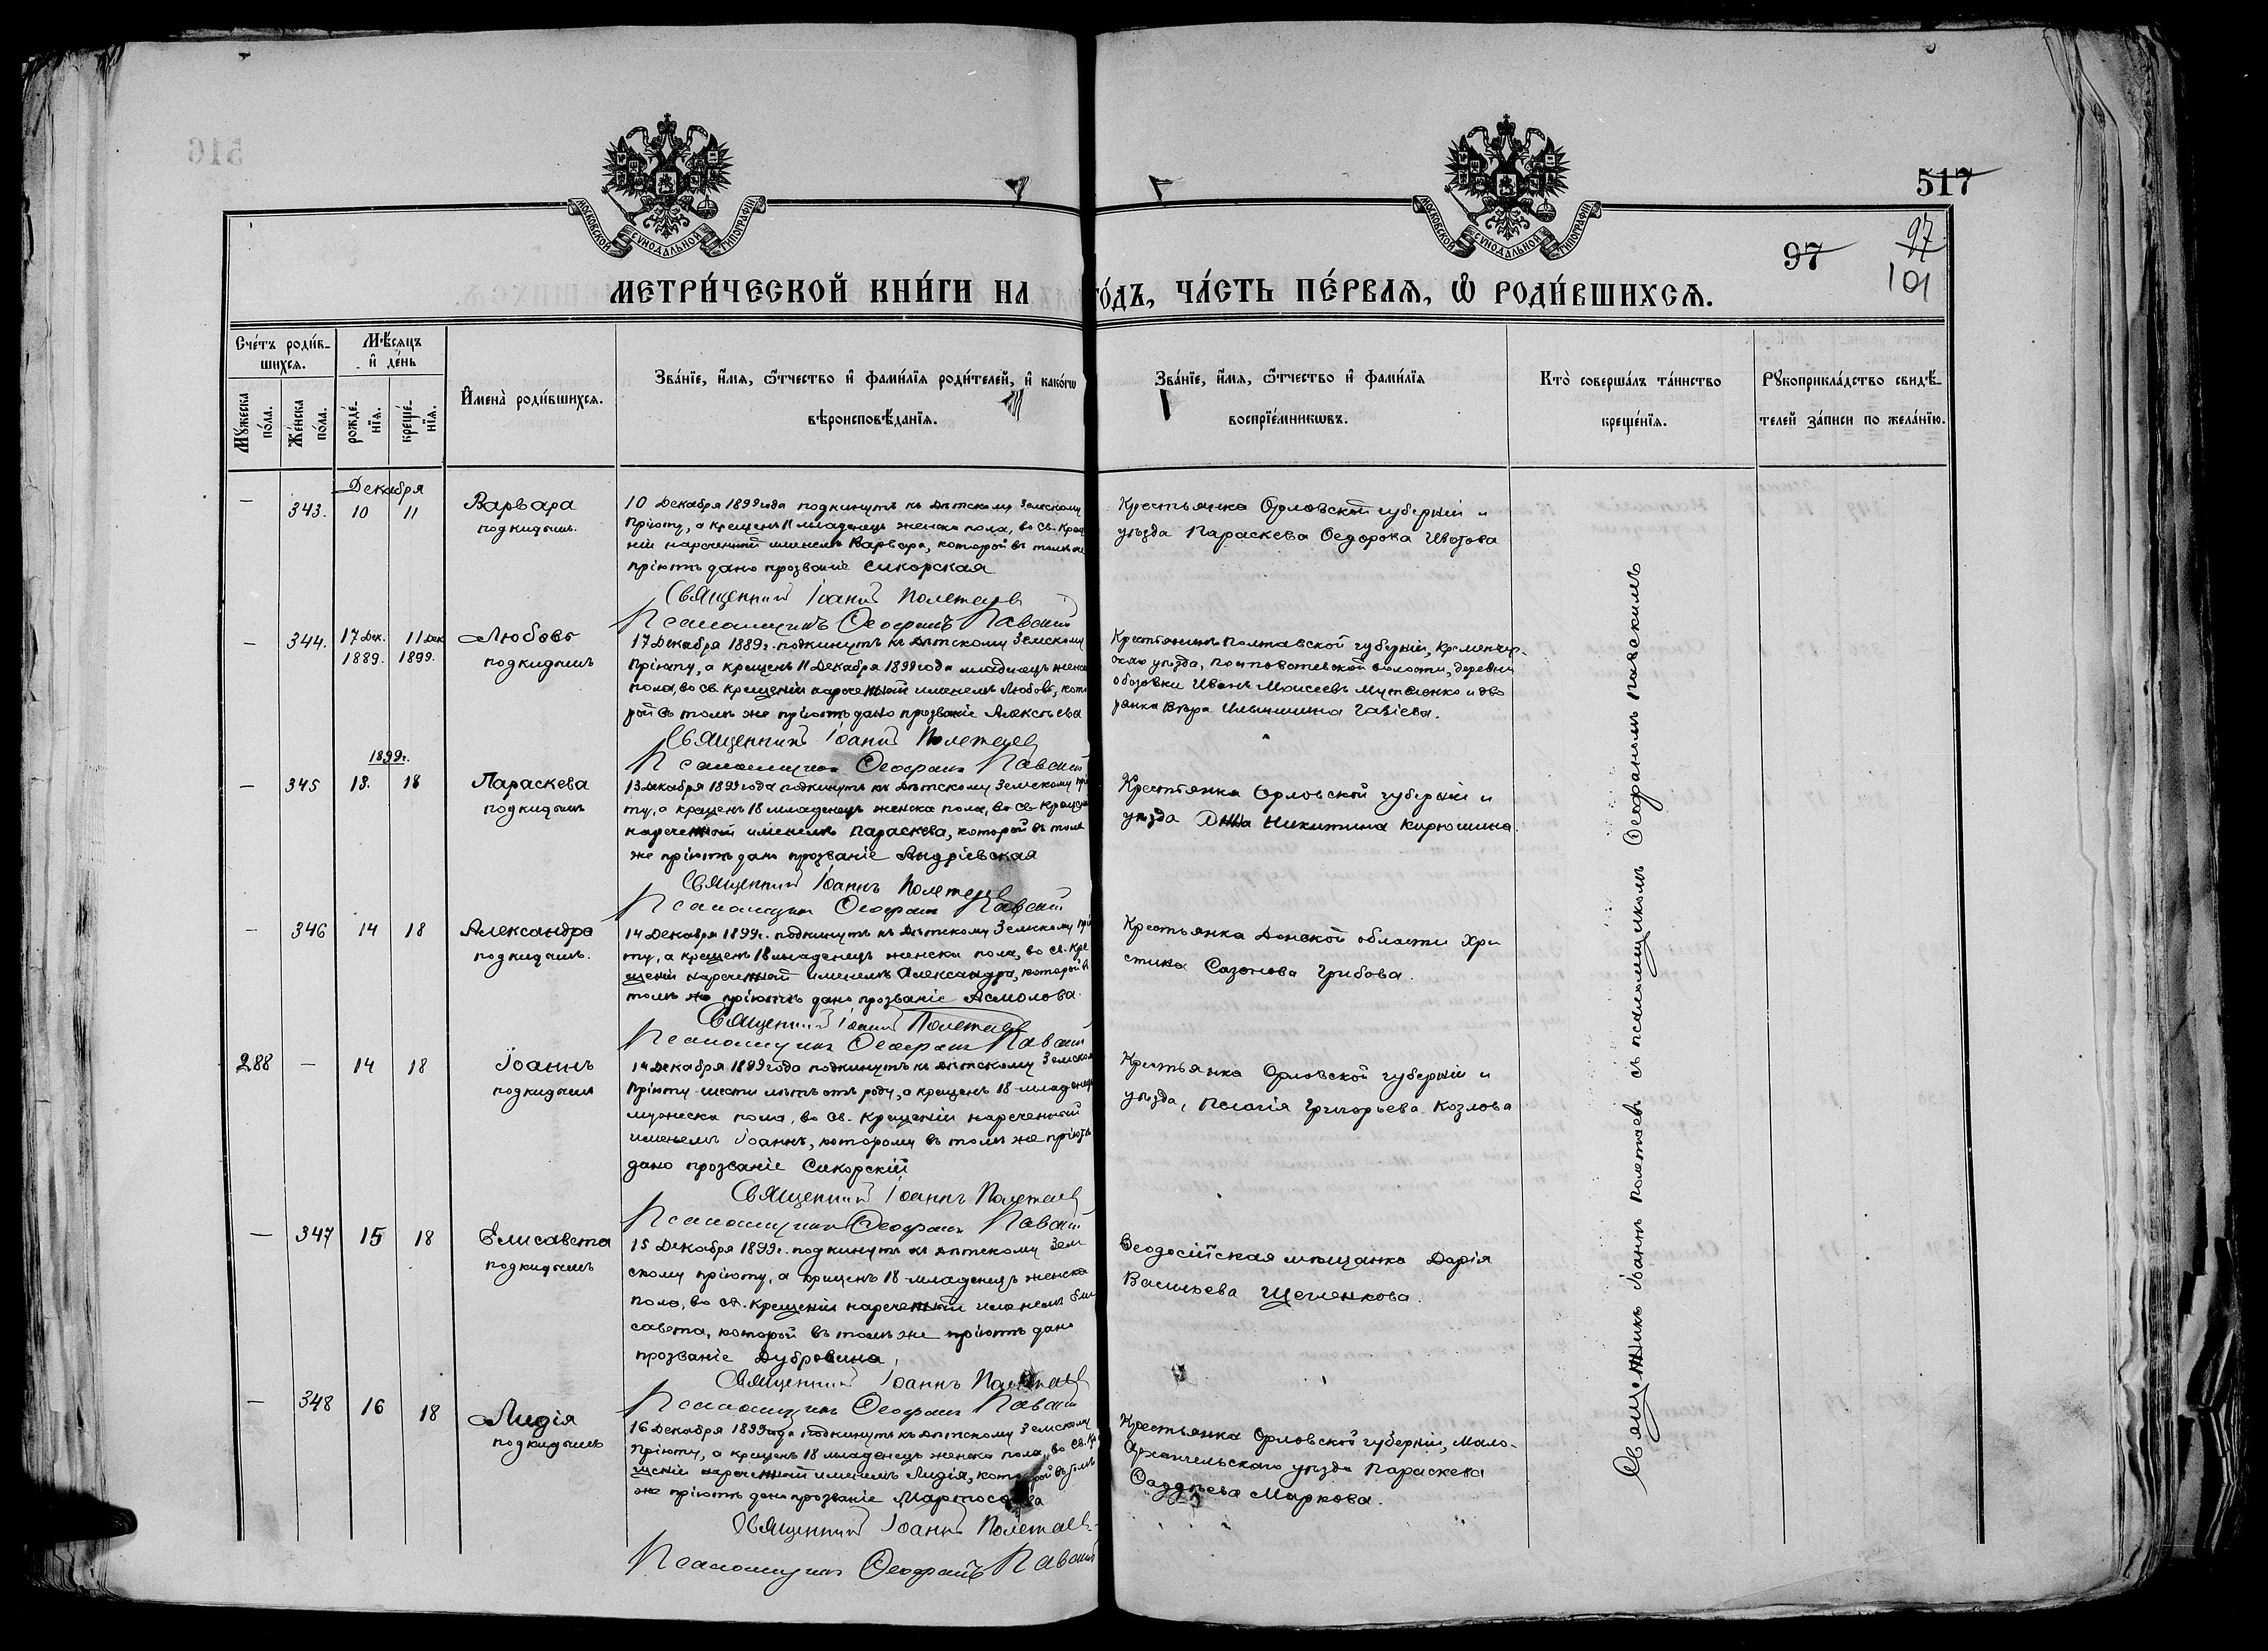 517
97
97
101
МОСКОВСКОЙ СУНОДАЛЬНОЙ ТИПОГРАФІИ
МОСКОВСКОЙ СУНОДАЛЬНОЙ ТИПОГРАФІИ
МЕТРИ́ЧЕСКОЙ КНИ́ГИ НА ГО́ДЪ, ЧА́СТЬ ПЕ́РВАѦ, Ѡ РОДИ́ВШИХСѦ.
Сче́тъ роди́в-
шихсѧ.
Мꙋ́жеска по́ла.
Же́нска по́ла.
Мѣ́сѧцъ и҆ де́нь
рожде́-
нїѧ.
креще́-
нїѧ.
И҆мена̀ роди́вшихсѧ.
Зва́нїе, и҆́мѧ, ѻ҆́тчество и҆ фами́лїѧ роди́телей, и҆ како́гѡ
вѣроисповѣ́данїѧ.
Зва́нїе, и҆́мѧ, ѻ҆́тчество и҆ фами́лїѧ
воспрїе́мникѡвъ.
Кто̀ соверша́лъ та́инство
креще́нїѧ.
Рꙋкоприкла́дство свидѣ́-
телей за́писи по жела́нїю.
Декабря
— 343. 10 11
Варвара
подкидышъ.
10 Декабря 1899 года подкинутъ къ Дѣтскому Земскому
Пріюту, а крещенъ 11 младенецъ женска пола, во Св. Крещ
ніи нареченный именемъ Варвара, которой въ томъ же
пріютѣ дано прозваніе Сикорская
Священникъ Іоаннъ Полетаевъ
Псаломщикъ Ѳеофанъ Павскій
Крестьянка Орловской губерніи и
уѣзда Параскева Ѳедорова Изотова
— 344. 17 Дек. 1889. 11 Дек 1899.
Любовь
подкидышъ
17 Декабря 1889 г. подкинутъ къ Дѣтскому Земскому
Пріюту, а крещенъ 11 Декабря 1899 года младенецъ женска
пола, во Св. Крещеніи нареченный именемъ Любовь, кото
рой въ томъ же пріютѣ дано прозваніе Алексѣева
Священникъ Іоаннъ Полетаевъ
Псаломщикъ Ѳеофанъ Павскій
Крестьянинъ Полтавской губерніи, Кременчуг-
скаго уѣзда, волости, деревни
Иванъ Моисеевъ и дво
рянка Вѣра Ильинична
1899 г.
— 345 13. 18
Параскева
подкидышъ
13 Декабря 1899 года подкинутъ къ Дѣтскому Земскому прі
ту, а крещенъ 18 младенецъ женска пола, во Св. Крещен
нареченный именемъ Параскева, которой въ томъ
же пріютѣ дано прозваніе Андріевская
Священникъ Іоаннъ Полетаевъ
Псаломщикъ Ѳеофанъ Павскій
Крестьянка Орловской губерніи и
уѣзда Никитина Кирюшина.
— 346 14 18
Александра
подкидышъ.
14 Декабря 1899 г. подкинутъ къ Дѣтскому Земскому прі
ту, а крещенъ 18 младенецъ женска пола, во Св. Кре
щеніи нареченный именемъ Александра, которой въ
томъ же пріютѣ дано прозваніе Асмолова.
Священникъ Іоаннъ Полетаевъ
Псаломщикъ Ѳеофанъ Павскій
Крестьянка Донской области Хри
стина Сазонова Грибова.
288 — 14 18
Іоаннъ
подкидышъ
14 Декабря 1899 года подкинутъ къ Дѣтскому Земском
Пріюту шести лѣтъ отъ роду, а крещенъ 18 младенецъ
мужеска пола, во Св. Крещеніи нареченный
именемъ Іоаннъ, которому въ томъ же пріютѣ
дано прозваніе Сикорскій
Священникъ Іоаннъ Полетаевъ
Псаломщикъ Ѳеофанъ Павскій
Крестьянка Орловской губерніи и
уѣзда, Пелагія Григорьева Козлова
— 347 15 18
Елисавета
подкидышъ
15 Декабря 1899 г. подкинутъ къ Дѣтскому Зем
скому пріюту, а крещенъ 18 младенецъ женска
пола, во Св. Крещеніи нареченный именемъ Ели
савета, которой въ томъ же пріютѣ дано
прозваніе Дубровина,
Священникъ Іоаннъ Полетаевъ
Псаломщикъ Ѳеофанъ Павскій
Ѳеодосійская мѣщанка Дарія
Васильева Щегленкова.
— 348 16 18
Лидія
подкидышъ
16 Декабря 1899 года подкинутъ къ Дѣтскому Земскому
Пріюту, а крещенъ 18 младенецъ женска пола, во Св. Кр
щеніи нареченный именемъ Лидія, которой въ томъ
же пріютѣ дано прозваніе
Священникъ Іоаннъ Полетаевъ
Псаломщикъ Ѳеофанъ Павскій
Крестьянка Орловской губерніи, Мало-
Архангельскаго уѣзда Параскева
Ѳаддѣева Маркова.
Священникъ Іоаннъ Полетаевъ съ псаломщикомъ Ѳеофаномъ Павскимъ